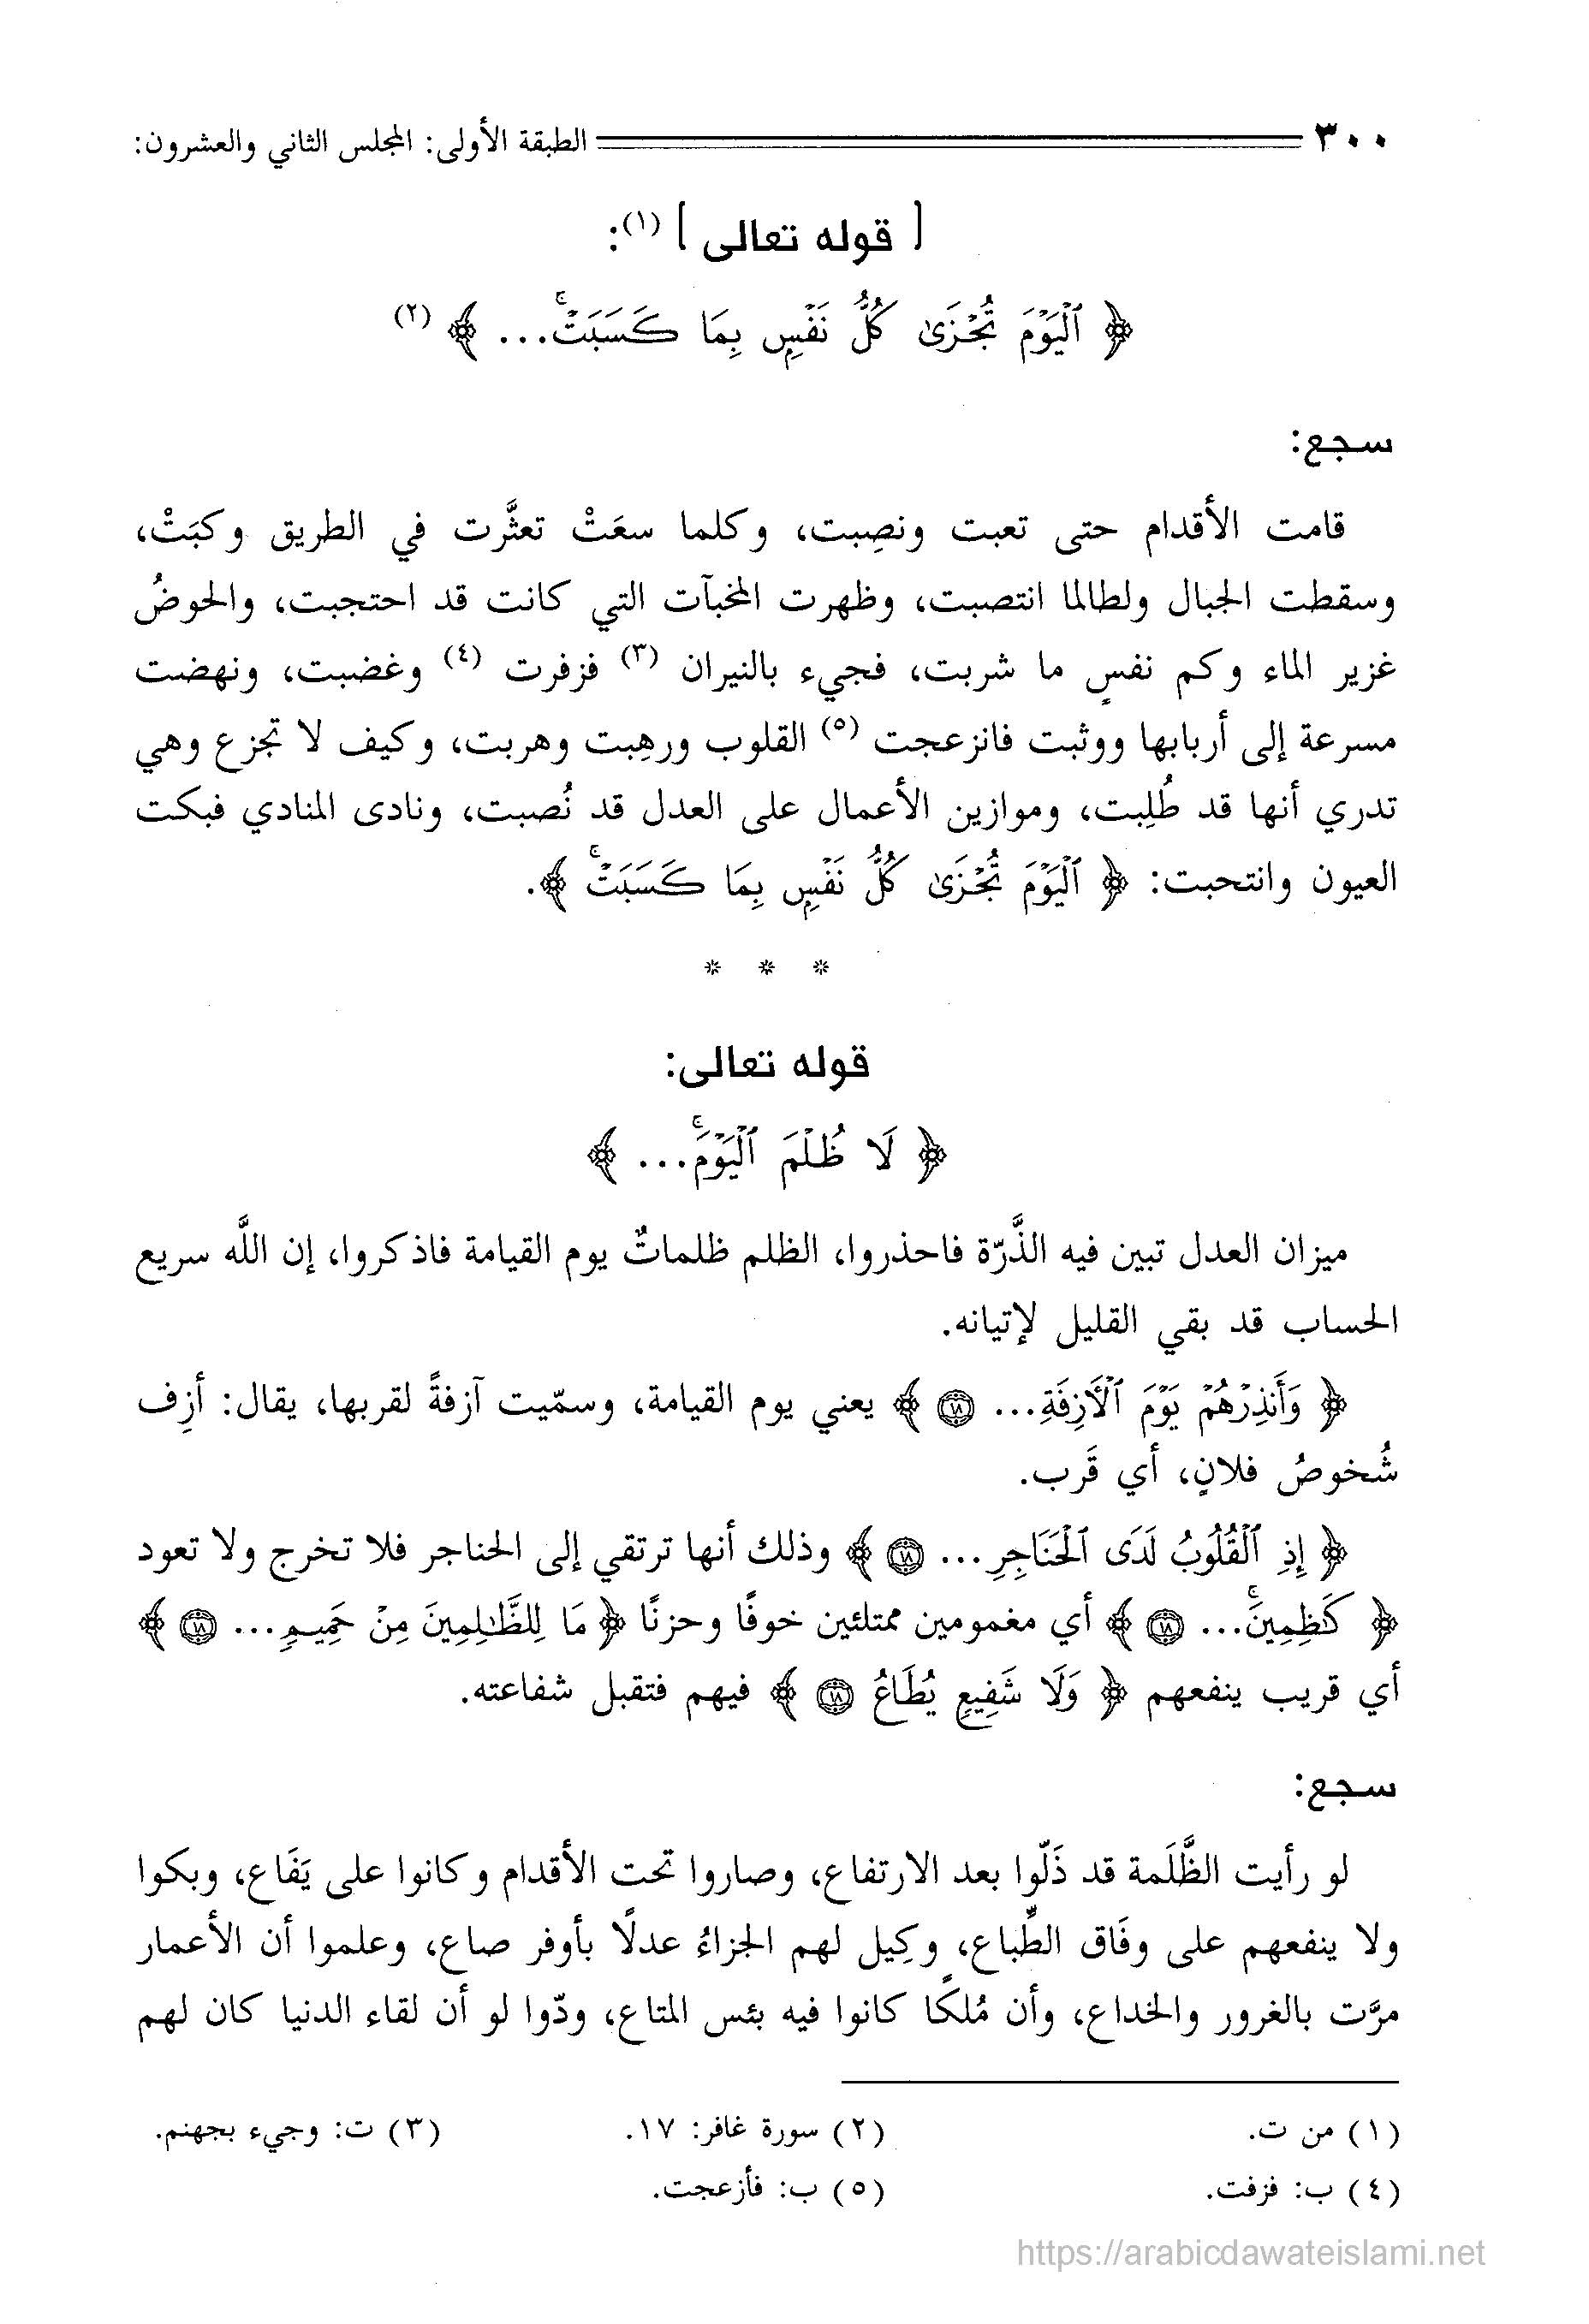 ٣٠٠ الطبقة الأولى: المجلس الثاني والعشرون:
[ قوله تعالى ] (١):
﴿ ٱلْيَوْمَ تُجْزَىٰ كُلُّ نَفْسٍ بِمَا كَسَبَتْ ۚ... ﴾ (٢)
سجع:
قامت الأقدام حتى تعبت ونصِبت، وكلما سعَتْ تعثَّرت في الطريق وكبَتْ،
وسقطت الجبال ولطالما انتصبت، وظهرت المخبآت التي كانت قد احتجبت، والحوضُ
غزير الماء وكم نفسٍ ما شربت، فجيء بالنيران (٣) فزفرت (٤) وغضبت، ونهضت
مسرعة إلى أربابها ووثبت فانزعجت (٥) القلوب ورهِبت وهربت، وكيف لا تجزع وهي
تدري أنها قد طُلِبت، وموازين الأعمال على العدل قد نُصبت، ونادى المنادي فبكت
العيون وانتحبت: ﴿ ٱلْيَوْمَ تُجْزَىٰ كُلُّ نَفْسٍ بِمَا كَسَبَتْ ۚ ﴾.
* * *
قوله تعالى:
﴿ لَا ظُلْمَ ٱلْيَوْمَ ۚ... ﴾
ميزان العدل تبين فيه الذَّرّة فاحذروا، الظلم ظلماتٌ يوم القيامة فاذكروا، إن اللَّه سريع
الحساب قد بقي القليل لإتيانه.
﴿ وَأَنذِرْهُمْ يَوْمَ ٱلْأَزِفَةِ... ١٨ ﴾ يعني يوم القيامة، وسمّيت آزفةً لقربها، يقال: أزِف
شُخوصُ فلانٍ، أي قَرب.
﴿ إِذِ ٱلْقُلُوبُ لَدَى ٱلْحَنَاجِرِ... ١٨ ﴾ وذلك أنها ترتقي إلى الحناجر فلا تخرج ولا تعود
﴿ كَٰظِمِينَ ۚ... ١٨ ﴾ أي مغمومين ممتلئين خوفًا وحزنًا ﴿ مَا لِلظَّٰلِمِينَ مِنْ حَمِيمٍ... ١٨ ﴾
أي قريب ينفعهم ﴿ وَلَا شَفِيعٍ يُطَاعُ ١٨ ﴾ فيهم فتقبل شفاعته.
سجع:
لو رأيت الظَّلَمة قد ذَلّوا بعد الارتفاع، وصاروا تحت الأقدام وكانوا على يَفَاع، وبكوا
ولا ينفعهم على وفَاق الطِّباع، وكِيل لهم الجزاءُ عدلًا بأوفر صاع، وعلموا أن الأعمار
مرَّت بالغرور والخداع، وأن مُلكًا كانوا فيه بئس المتاع، ودّوا لو أن لقاء الدنيا كان لهم
(١) من ت. (٢) سورة غافر: ١٧. (٣) ت: وجيء بجهنم.
(٤) ب: فزفت. (٥) ب: فأزعجت.
https://arabicdawateislami.net